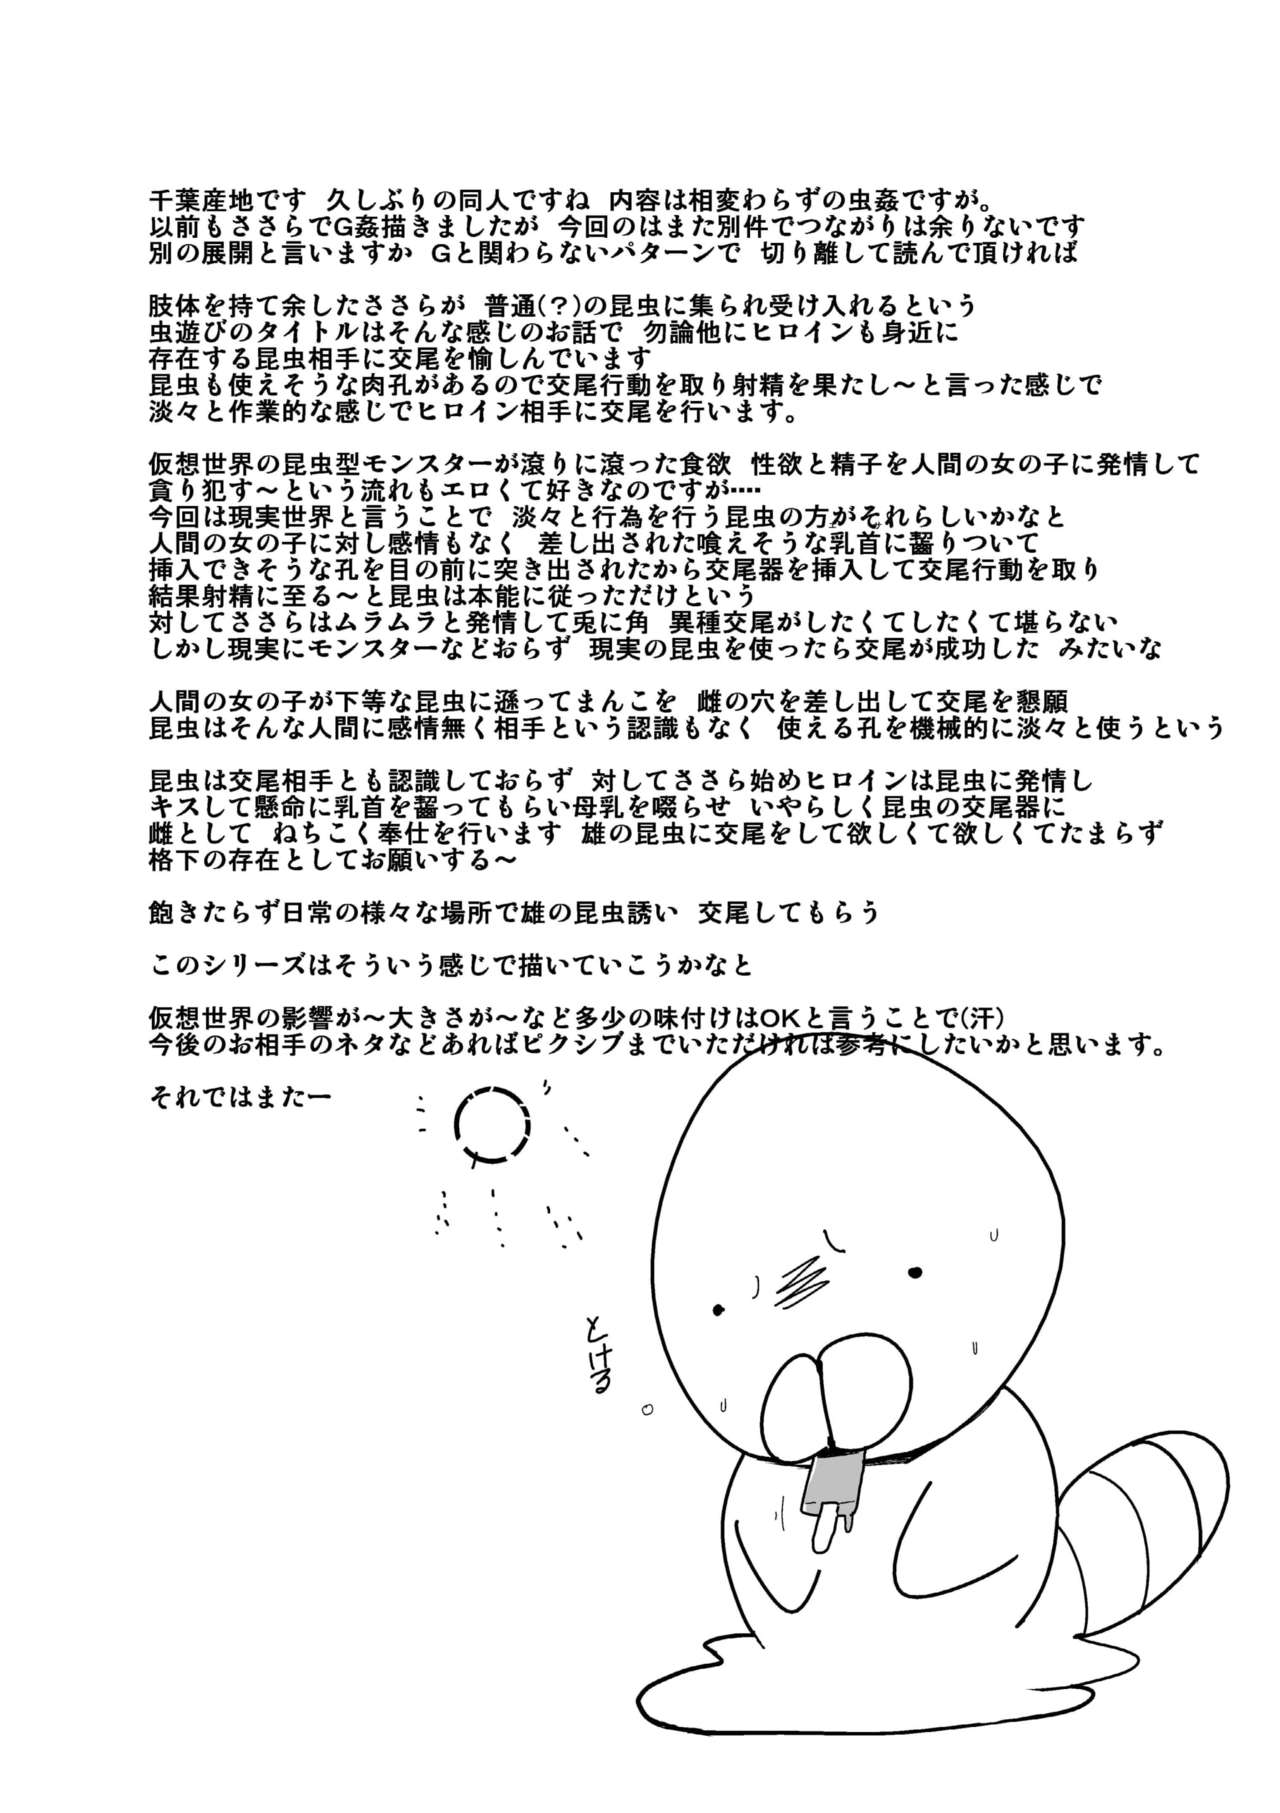 千葉産地です 久しぶりの同人ですね 内容は相変わらずの虫姦ですが。
以前もささらでG姦描きましたが 今回のはまた別件でつながりは余りないです
別の展開と言いますか Gと関わらないパターンで 切り離して読んで頂ければ
肢体を持て余したささらが 普通(?)の昆虫に集られ受け入れるという
虫遊びのタイトルはそんな感じのお話で 勿論他にヒロインも身近に
存在する昆虫相手に交尾を愉しんでいます
昆虫も使えそうな肉孔があるので交尾行動を取り射精を果たし～と言った感じで
淡々と作業的な感じでヒロイン相手に交尾を行います。
仮想世界の昆虫型モンスターが滾りに滾った食欲 性欲と精子を人間の女の子に発情して
貪り犯す～という流れもエロくて好きなのですが‥‥
今回は現実世界と言うことで 淡々と行為を行う昆虫の方がそれらしいかなと
人間の女の子に対し感情もなく 差し出された喰えそうな乳首に齧りついて
挿入できそうな孔を目の前に突き出されたから交尾器を挿入して交尾行動を取り
結果射精に至る～と昆虫は本能に従っただけという
対してささらはムラムラと発情して兎に角 異種交尾がしたくてしたくて堪らない
しかし現実にモンスターなどおらず 現実の昆虫を使ったら交尾が成功した みたいな
人間の女の子が下等な昆虫に遜ってまんこを 雌の穴を差し出して交尾を懇願
昆虫はそんな人間に感情無く相手という認識もなく 使える孔を機械的に淡々と使うという
昆虫は交尾相手とも認識しておらず 対してささら始めヒロインは昆虫に発情し
キスして懸命に乳首を齧ってもらい母乳を啜らせ いやらしく昆虫の交尾器に
雌として ねちこく奉仕を行います 雄の昆虫に交尾をして欲しくて欲しくてたまらず
格下の存在としてお願いする～
飽きたらず日常の様々な場所で雄の昆虫誘い 交尾してもらう
このシリーズはそういう感じで描いていこうかなと
仮想世界の影響が～大きさが～など多少の味付けはOKと言うことで(汗)
今後のお相手のネタなどあればピクシブまでいただければ参考にしたいかと思います。
それではまたー
とける